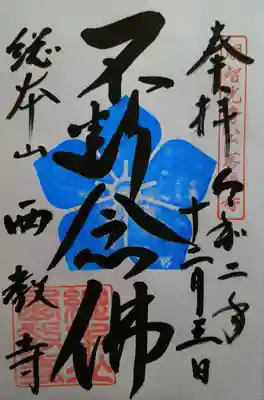 奉拝 令和二年
十二月三日
不断念佛
総本山 西教寺